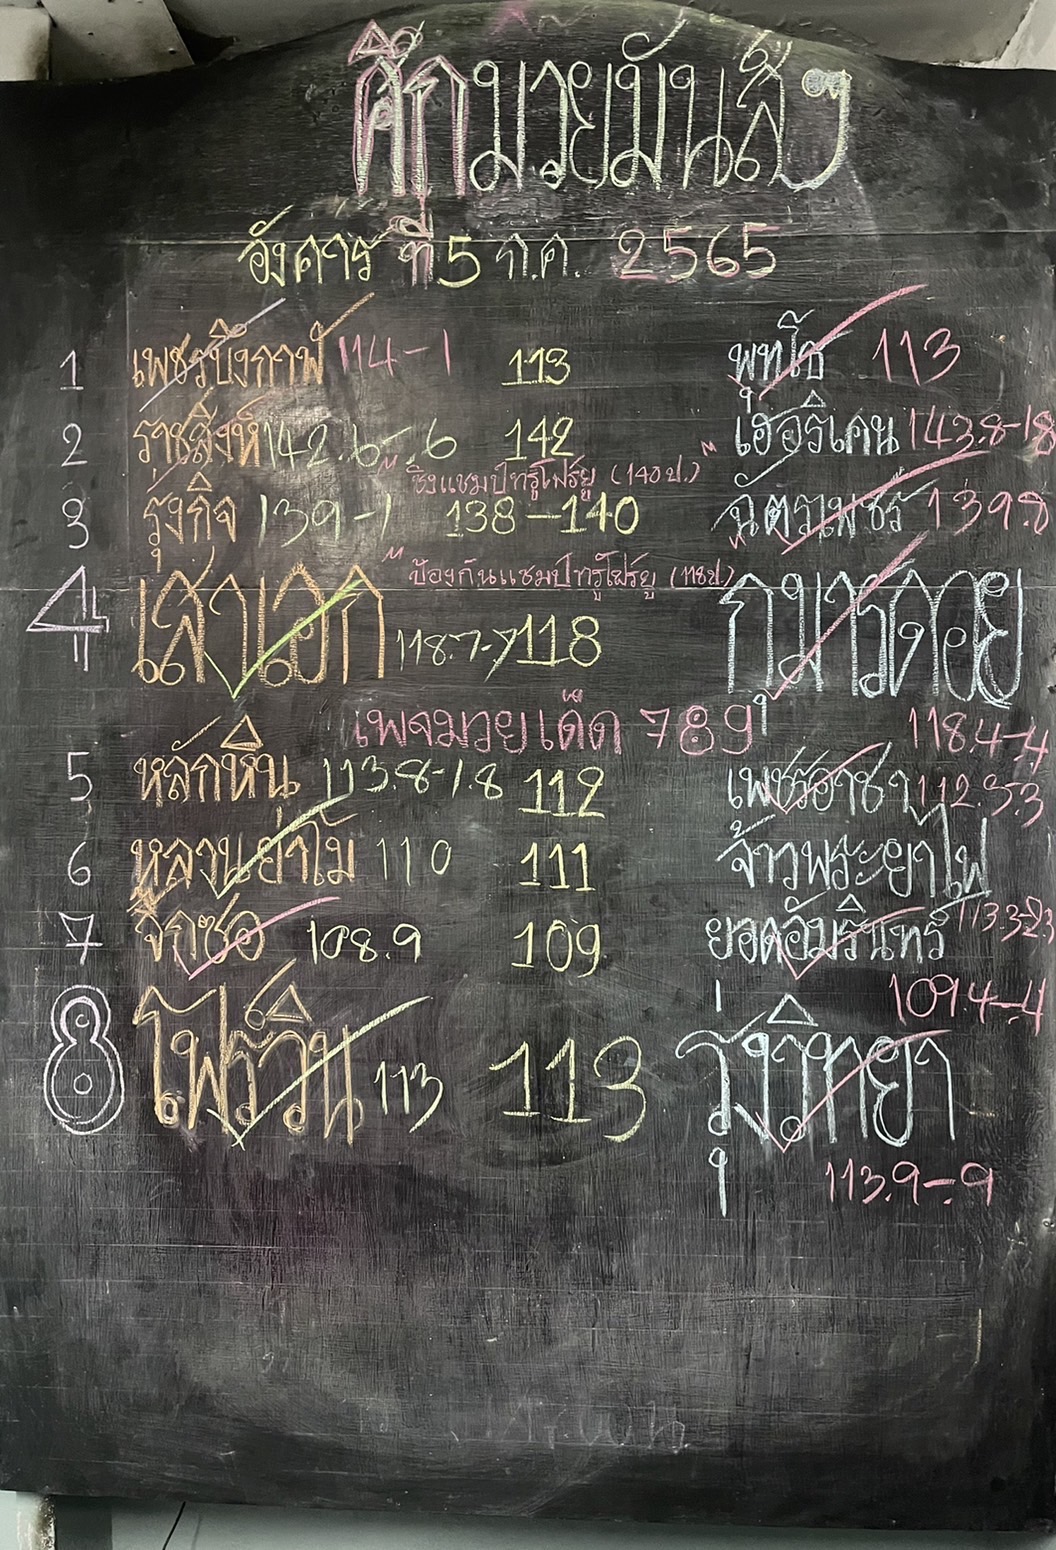 ศึกมวยมันส์ๆ
อังคาร ที่ 5 ก.ค. 2565
1 เพชรบึงกาฬ 114-1 113 พุทโธ 113
2 ราชสิงห์ 142.6-.6 142 เฮอริเคน 143.8-1.8
"ชิงแชมป์ทรูโฟร์ยู (140ป.)"
3 รุ่งกิจ 139-1 138-140 ฉัตรเพชร 139.8
"ป้องกันแชมป์ทรูโฟร์ยู (118ป.)"
4 เสาเอก 118.7-.7 118 กุมารดอย
118.4-.4
เพจมวยเด็ด 789
5 หลักหิน 113.8-1.8 112 เพชรอาชา 112.3-.3
6 หลวนย่าโม 110 111 จ้าวพระยาไฟ
113.3-2.3
7 จิกซอ 108.9 109 ยอดอัมรินทร์
109.4-.4
8 ไฟตะวัน 113 113 รุ่งวิทยา
113.9-.9